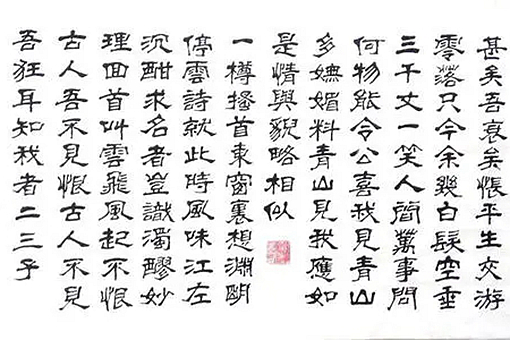 甚矣吾衰矣悵平生交游
零落只今余幾白髮空垂
三千丈一笑人間萬事問
何物能令公喜我見青山
多嫵媚料青山見我應如
是情與貌略相似
一樽搔首東窗裏想淵明
停雲詩就此時風味江左
沉酣求名者豈識濁醪妙
理回首叫雲飛風起不恨
古人吾不見恨古人不見
吾狂耳知我者二三子